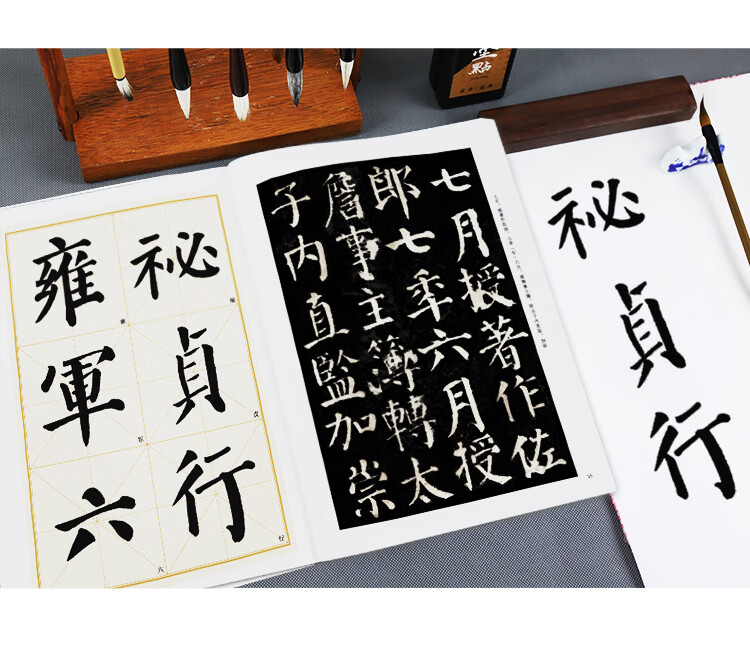 祕貞行
雍軍六
七月授著作佐
郎七秊六月授
詹事主簿轉太
子内直監加崇
祕貞行